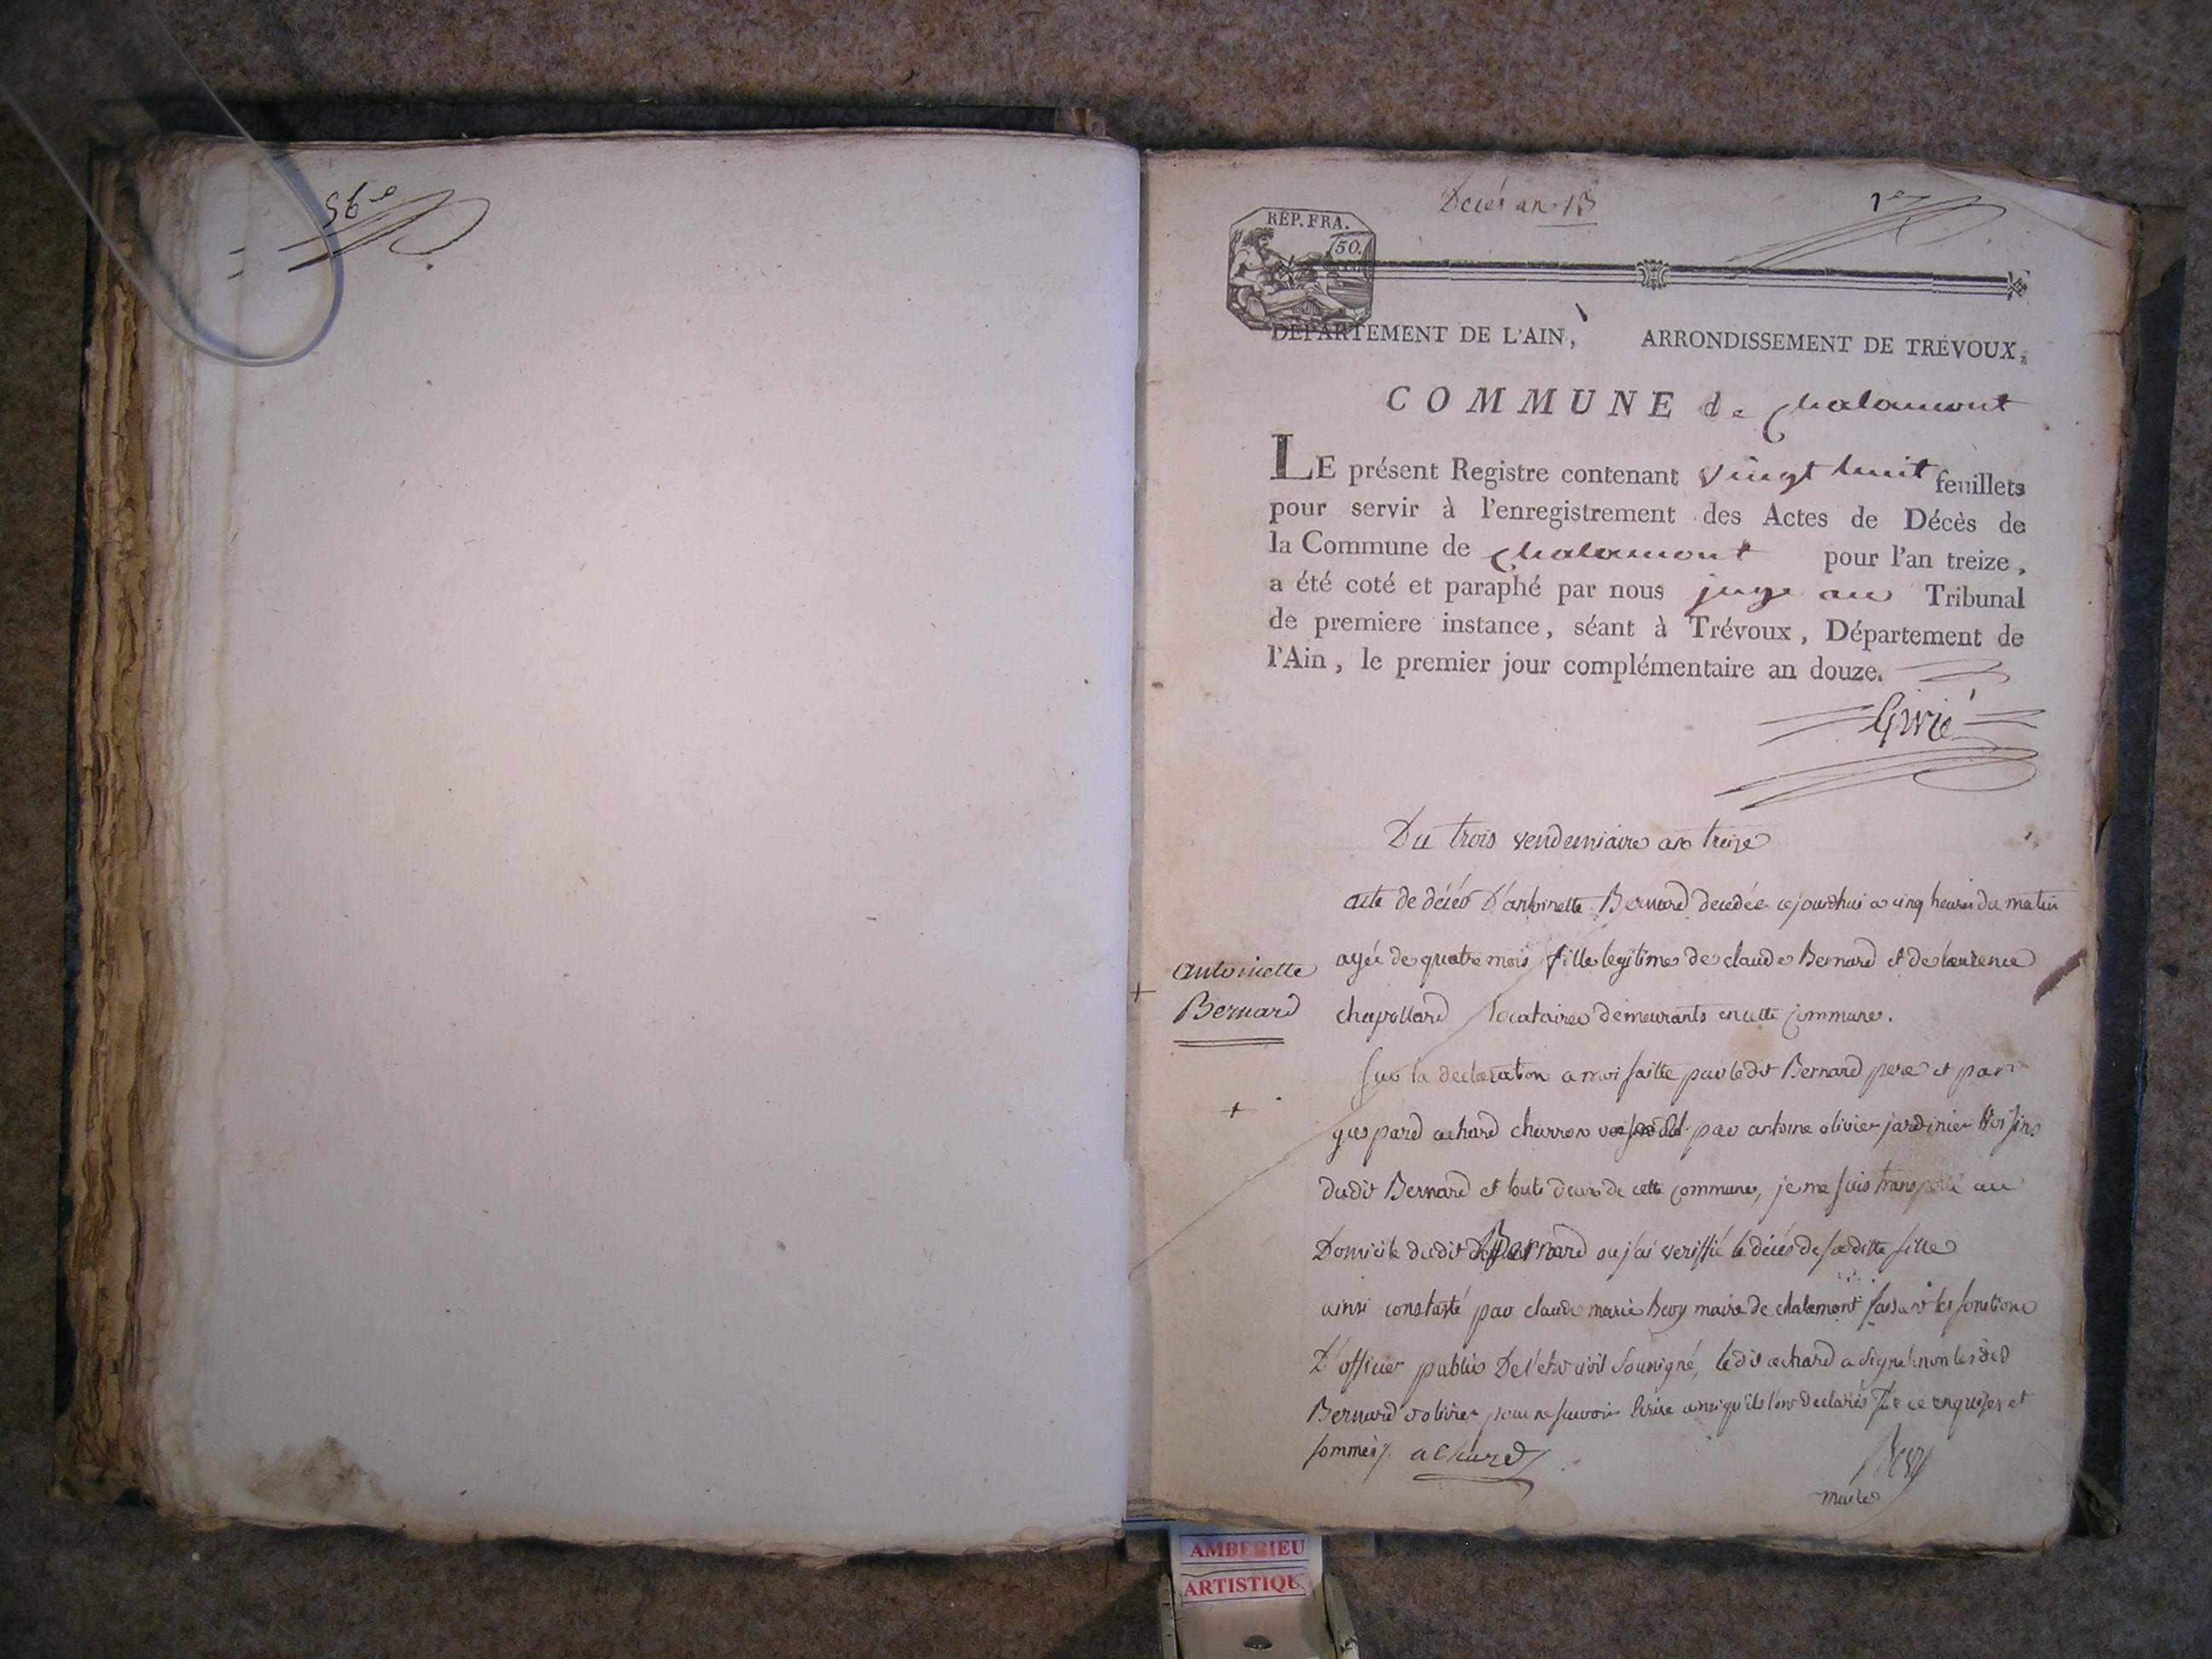 56e
Décès an 13
1er
RÉP. FRA.
50.
DÉPARTEMENT DE L'AIN, ARRONDISSEMENT DE TRÉVOUX,
COMMUNE de chalamont
LE présent Registre contenant vingt huit feuillets
pour servir à l'enregistrement des Actes de Décès de
la Commune de chalamont pour l'an treize,
a été coté et paraphé par nous juge au Tribunal
de premiere instance, séant à Trévoux, Département de
l'Ain, le premier jour complémentaire an douze.
Du trois vendemiaire an treize
acte de décés D'antoinette Bernard decedée cejourdhui a cinq heures du matin
agée de quatre mois fille legitime de claude Bernard et de laurence
Antoinette
Bernard
chapollard locataires demeurants en cette commune.
sur la declaration a moi faitte par ledit Bernard pere et par
gaspard achard charron par antoine olivier jardinier voisins
dudit Bernard et touts deux de cette commune, je me suis transporté au
Domicile dudit Bernard ou j'ai veriffié le décés de saditte fille
ainsi constaté par claude marie Bevy maire de chalamont faisant les fonctions
D'officier public De l'etat civil soussigné, ledit achard a signé non lesdits
Bernard et olivier pour ne savoir Ecrire ainsi qu'ils l'ont declarés de ce enquises et
sommés. achard
Bevy
maire
AMBERIEU
ARTISTIQUE